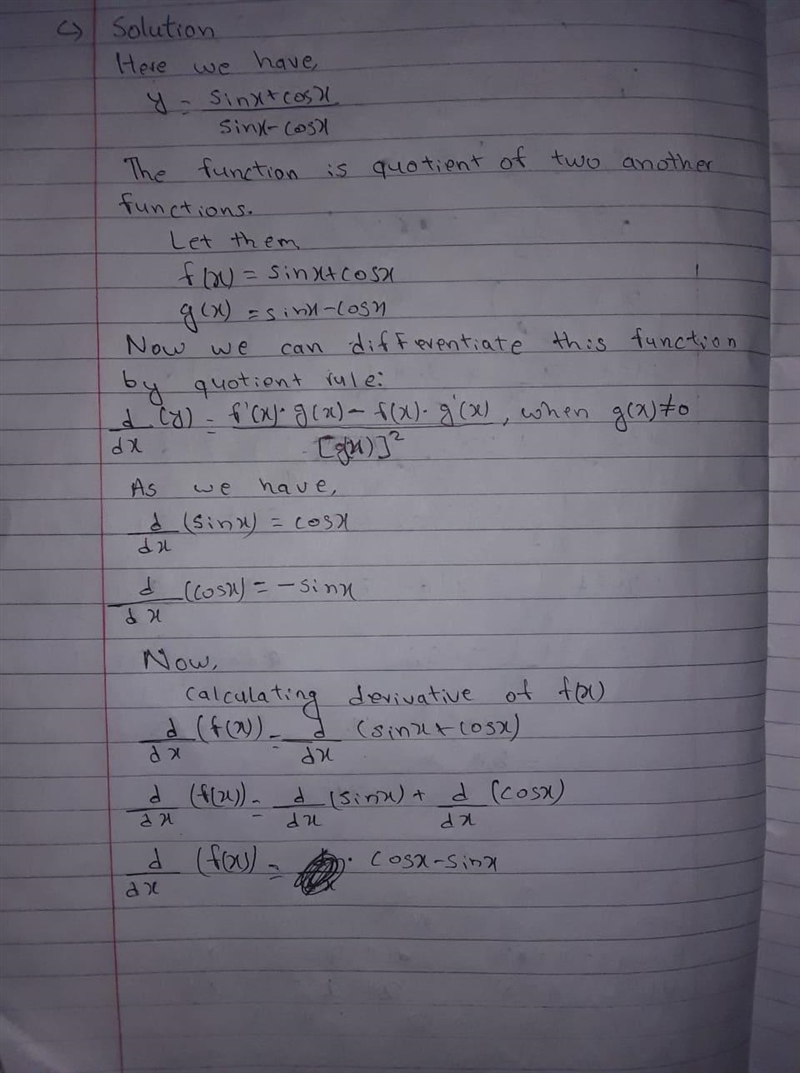 c) Solution
Here we have,
y = sinx+cosx / sinx-cosx
The function is quotient of two another
functions.
Let them
f(x) = sinx+cosx
g(x) = sinx-cosx
Now we can differentiate this function
by quotient rule:
d/dx (y) = f'(x)·g(x) - f(x)·g'(x) / [g(x)]², when g(x)≠0
As we have,
d/dx (sinx) = cosx
d/dx (cosx) = -sinx
Now,
calculating derivative of f(x)
d/dx (f(x)) = d/dx (sinx+cosx)
d/dx (f(x)) = d/dx (sinx) + d/dx (cosx)
d/dx (f(x)) = cosx-sinx